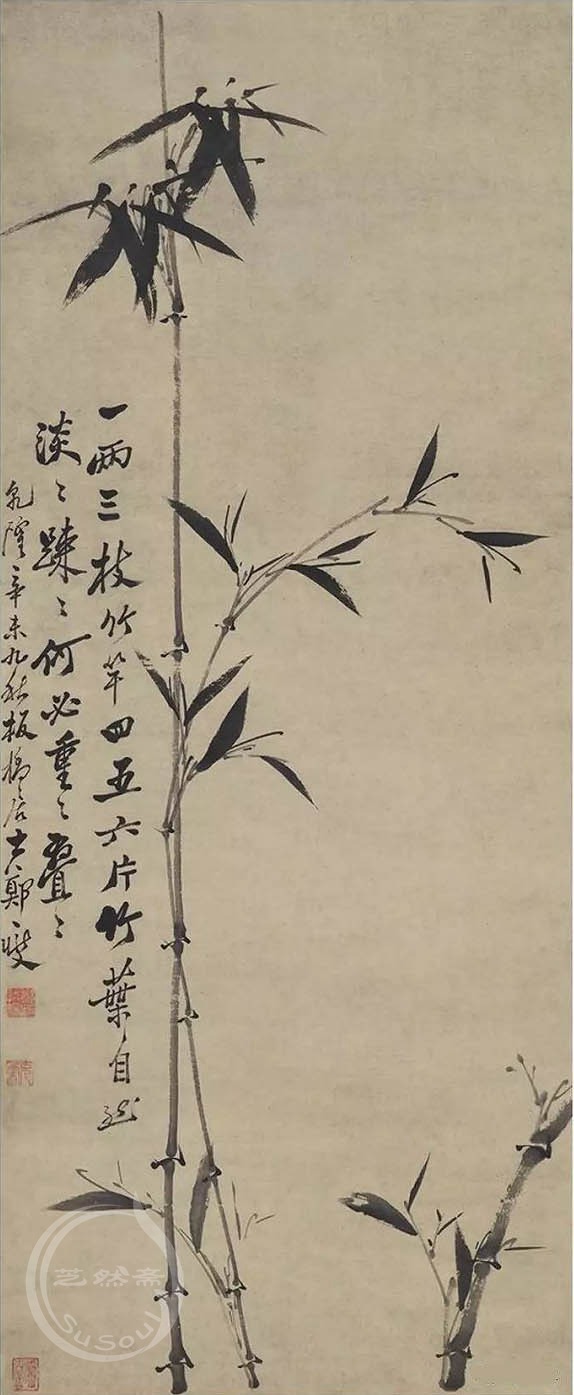 一两三枝竹竿四五六片竹葉自然
淡〻疎〻何必重〻疊〻
乾隆辛未九秋板橋居士鄭燮
芝然斋
SuSoul